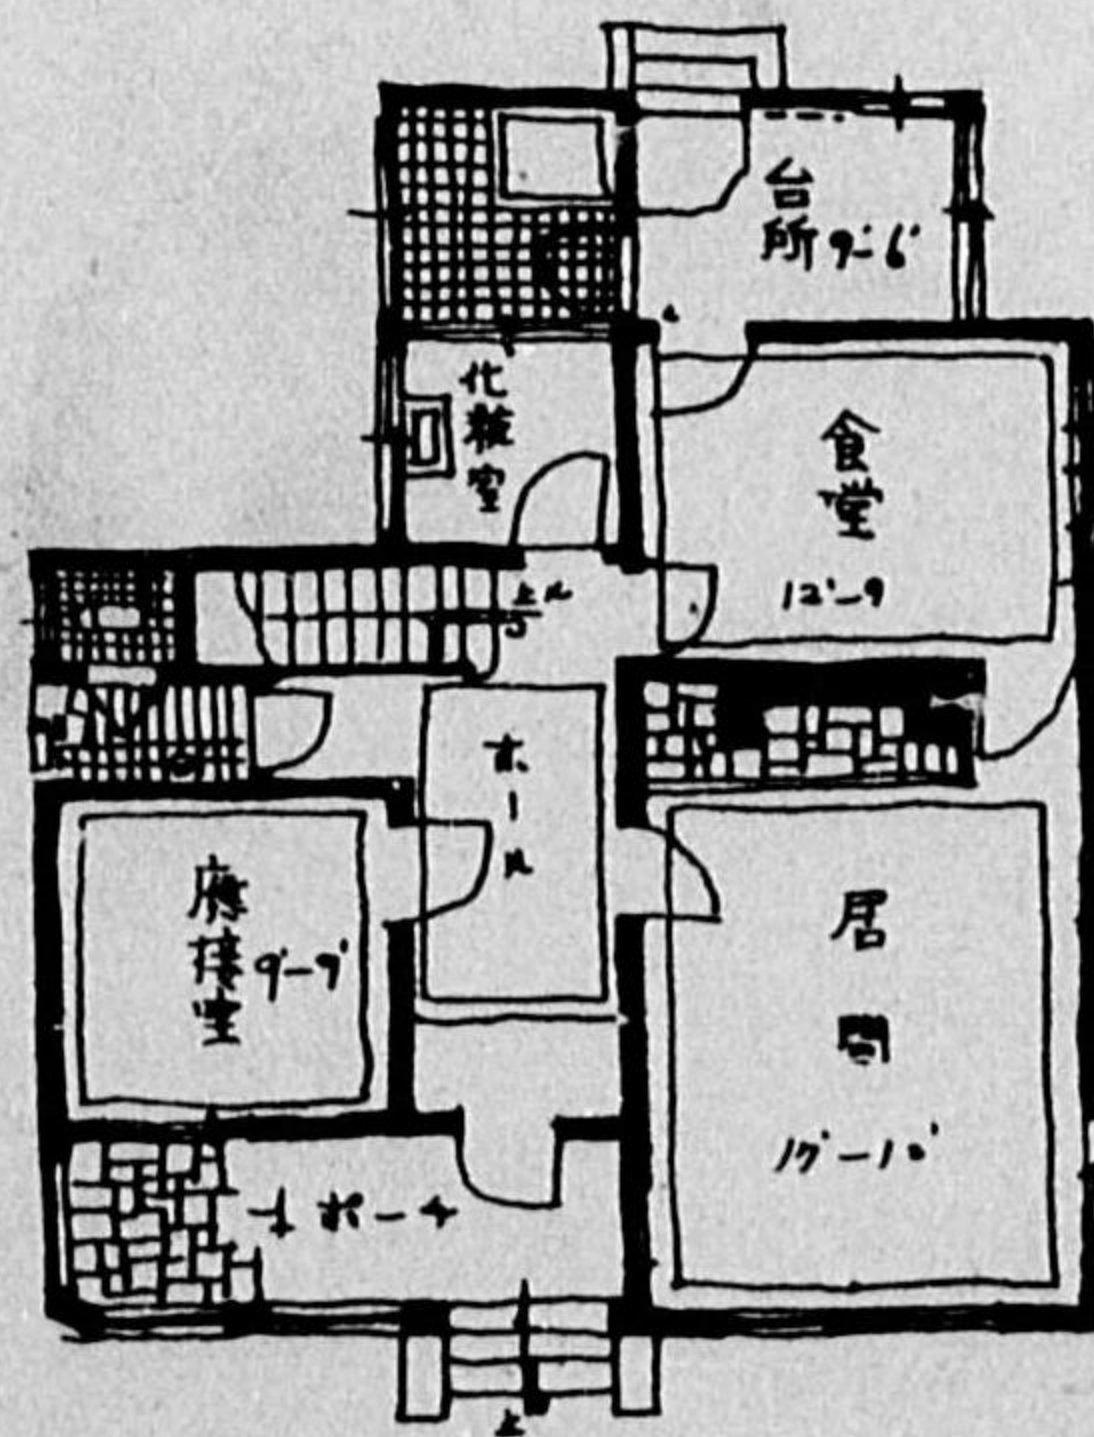 台所 9'-6'
化粧室
食堂
12'-9
上ル
ホール
應接室 9'-9'
居間
ポーチ
上